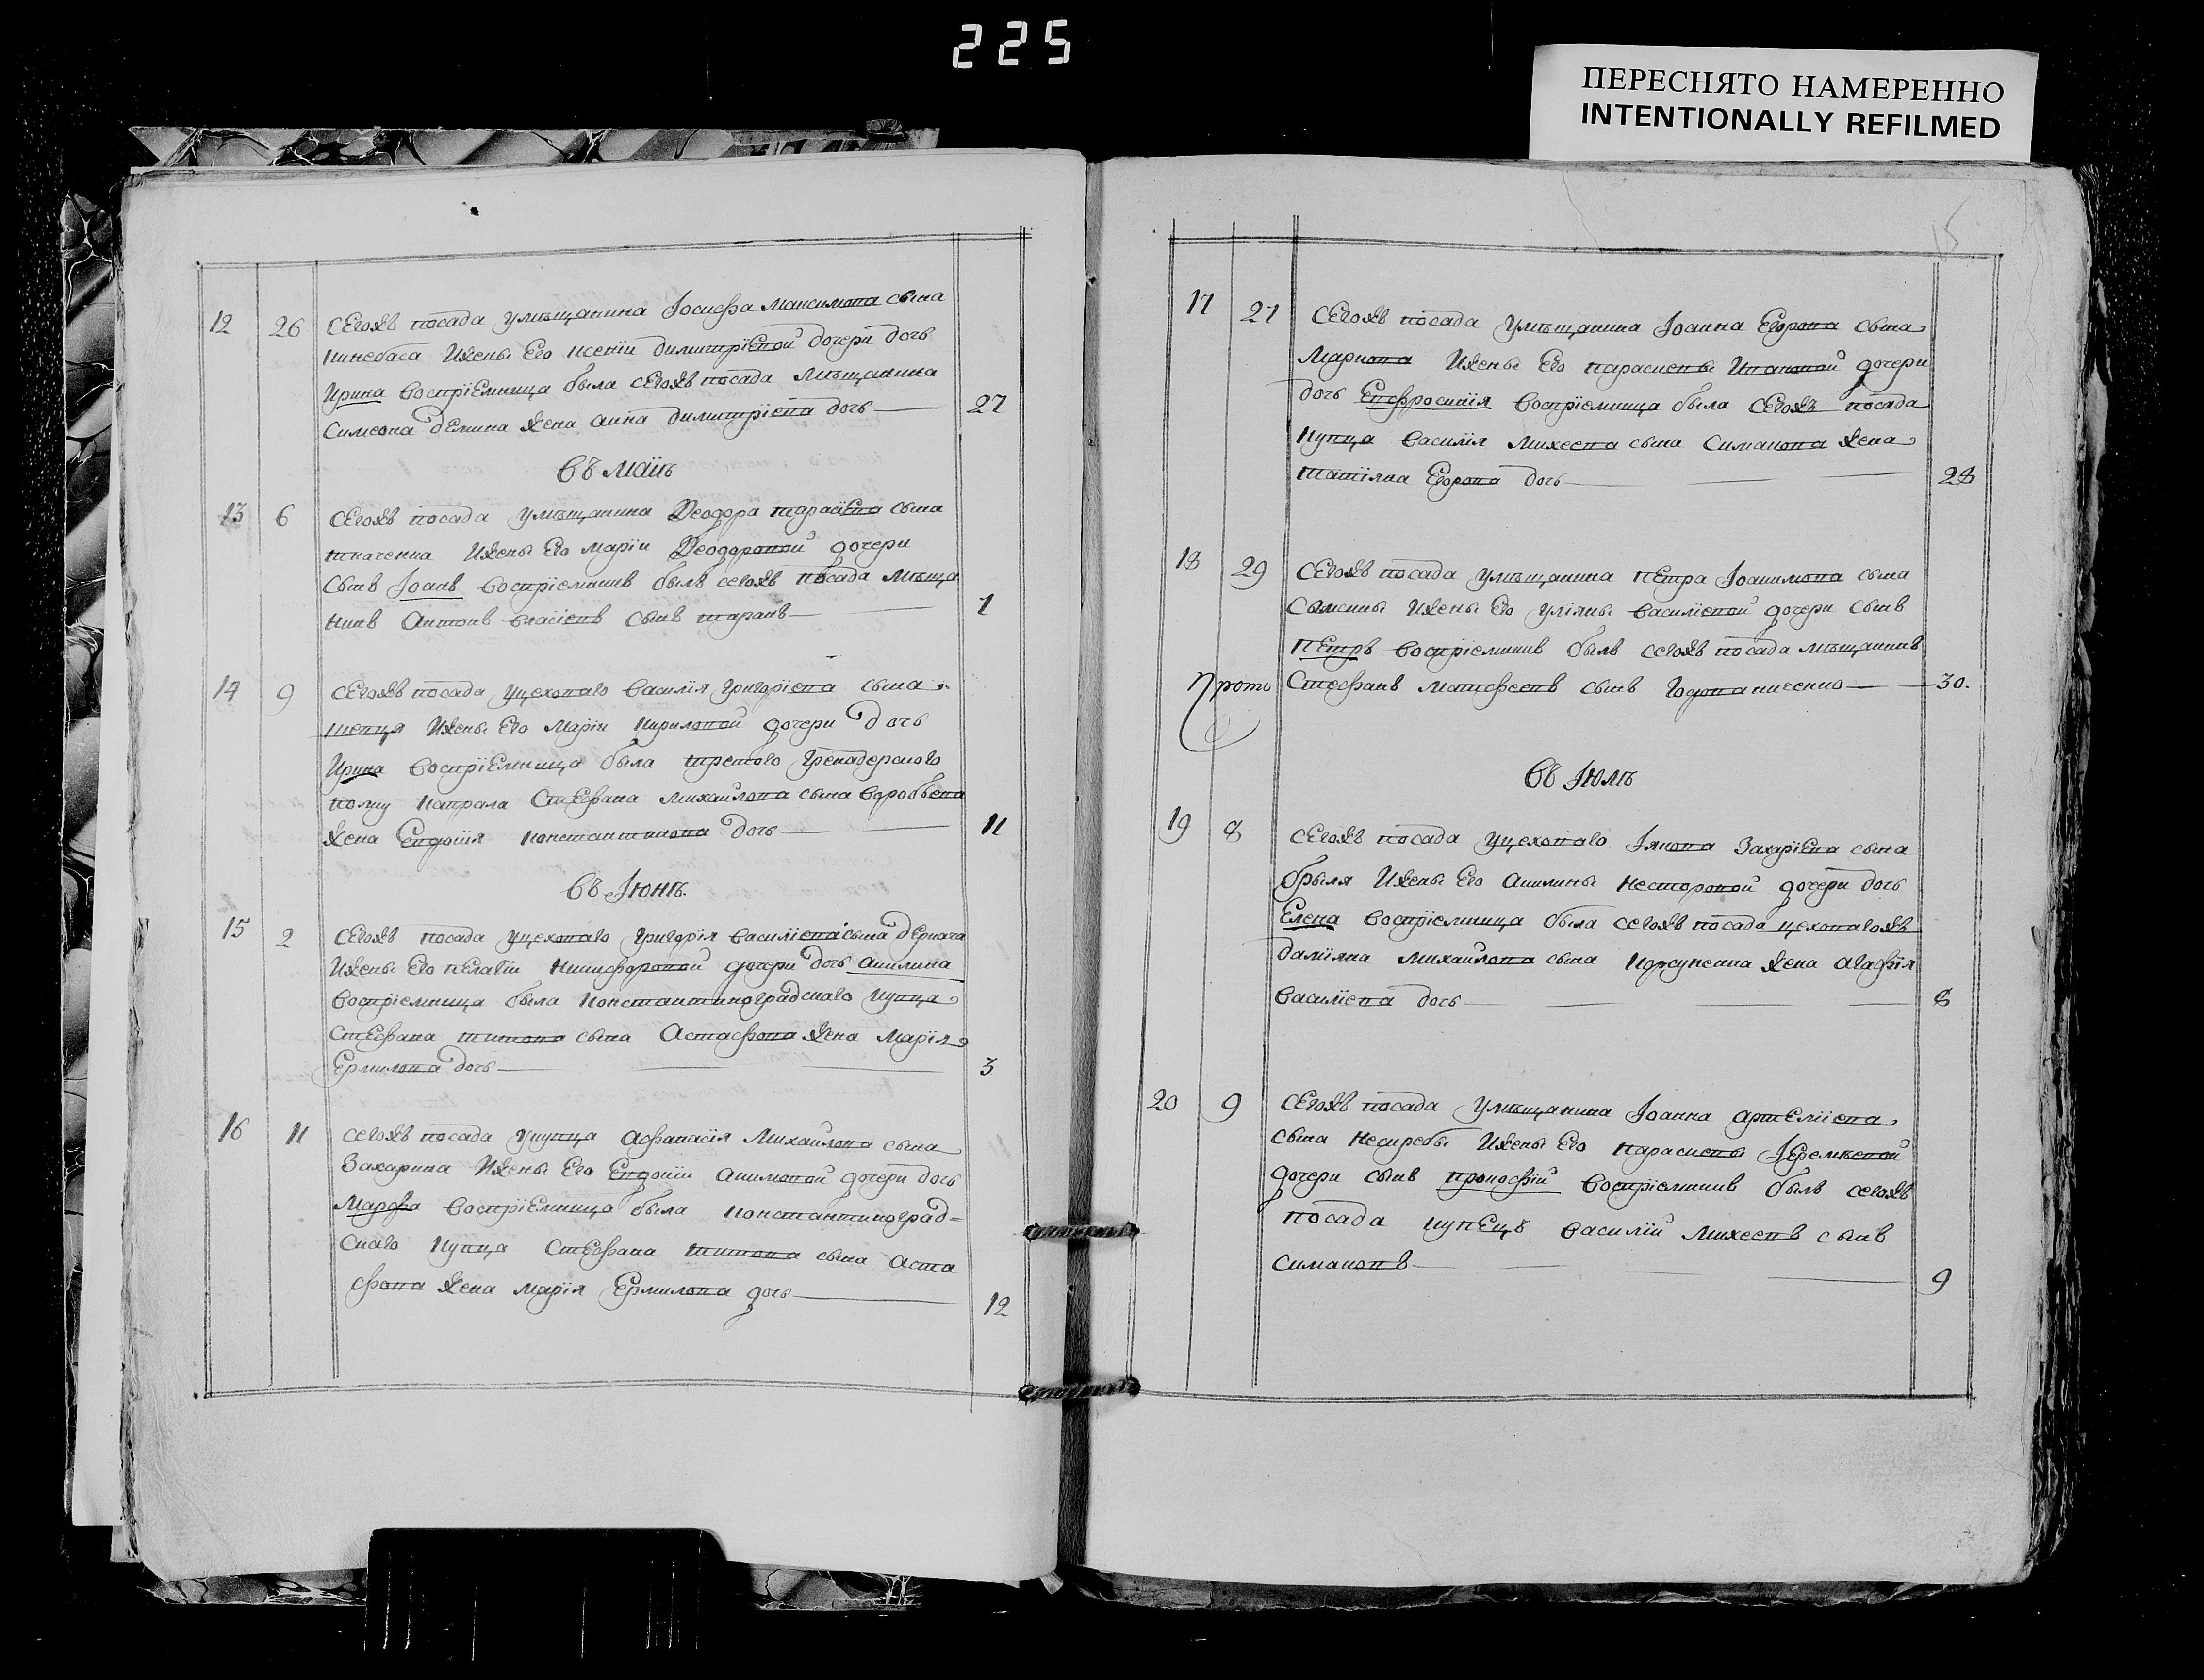 225
ПЕРЕСНЯТО НАМЕРЕННО
INTENTIONALLY REFILMED
12 26 Сегожъ посада умѣщанина Іосифа Максимова сына
Кинебаса Ижены Его Ксеніи Димитріевой дочери дочь
Ирина Воспріемница была сегожъ посада мѣщанина
Симеона Демина жена Анна Димитріева дочь 27
Въ маіѣ
13 6 Сегожъ посада умѣщанина Ѳеодора Тарасіева сына
Ткаченка Ижены Его Маріи Ѳеодоровой дочери
сынъ Іоанъ Воспріемникъ былъ сегожъ посада мѣща
нинъ Антонъ Власіевъ сынъ Таранъ 1
14 9 Сегожъ посада уцеховаго Василія Григоріева сына
Шевця Ижены Его Маріи Кириловой дочери дочь
Ирина Воспріемница была третого Гренадерского
полку Капрала Стефана Михайлова сына Воробьева
жена Евдокія Константинова дочь 11
Въ Іюнѣ.
15 2 Сегожъ посада уцеховаго Григорія Василіева сына Деркача
Ижены Его Пелагіи Никифоровой дочери дочь Акилина
Воспріемница была Константиноградскаго Купца
Стефана Титова сына Астафова жена Марія
Ермилова дочь 3
16 11 Сегожъ посада укупца Афанасія Михайлова сына
Захарина Ижены Его Евдокіи Акимовой дочери дочь
Марфа Воспріемница была Константиноград=
скаго Купца Стефана Титова сына Аста
фова жена Марія Ермилова дочь 12
15
17 27 Сегожъ посада умѣщанина Іоанна Егорова сына
Маркова Ижены Его Параскевы Ивановой дочери
дочь Евфросинія Воспріемница была сегожъ посада
Купца Василія Михеева сына Симакова жена
Татіяна Егорова дочь 28
18 29 Сегожъ посада умѣщанина Петра Іоакимова сына
Ижены Его Уліяны Василіевой дочери сынъ
Петръ Воспріемникъ былъ сегожъ посада мѣщанинъ
Прото Стефанъ Матфеевъ сынъ Годованиченко 30.
Въ Іюлѣ
19 8 Сегожъ посада уцеховаго Іякова Захаріева сына
Брыля Ижены Его Акилины Несторовой дочери дочь
Елена Воспріемница была сегожъ посада цеховагожъ
Даміяна Михайлова сына Корсункина жена Агафія
Василіева дочь 8
20 9 Сегожъ посада умѣщанина Іоанна Артеміева
сына Нескребы Ижены Его Параскевы Іеремѣевой
дочери сынъ Прокофій Воспріемникъ былъ сегожъ
посада купецъ Василій Михеевъ сынъ
Симаковъ 9